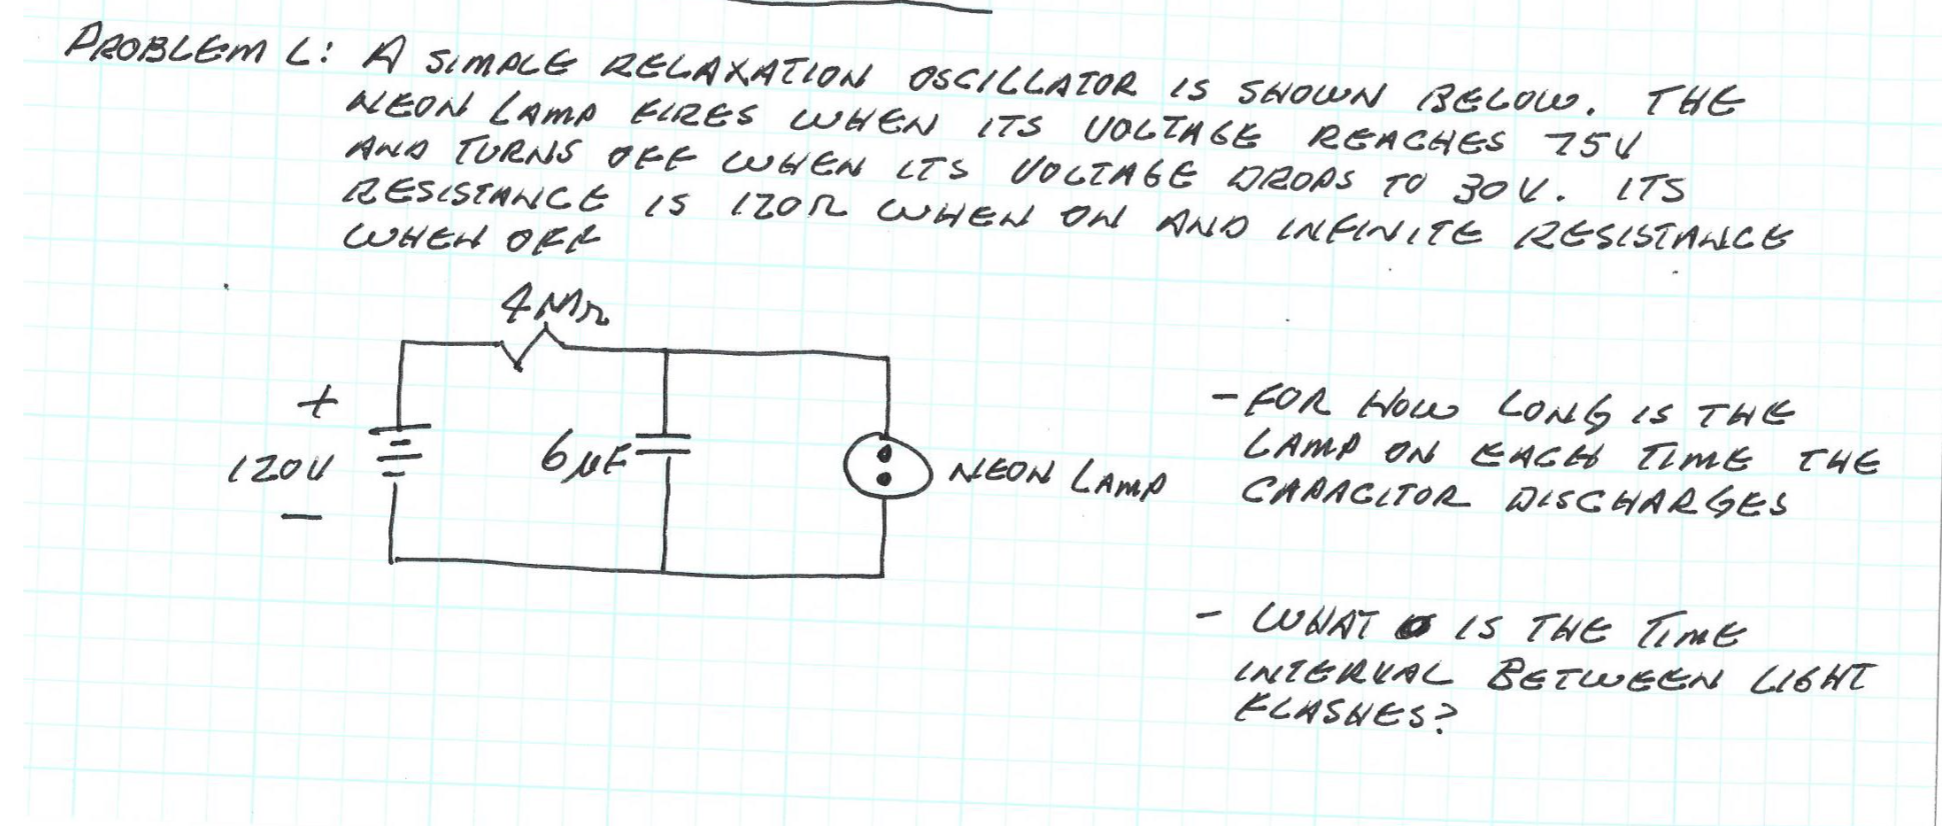 PROBLEM L: A SIMPLE RELAXATION OSCILLATOR IS SHOWN BELOW. THE
NEON LAMP FIRES WHEN ITS VOLTAGE REACHES 75V
AND TURNS OFF WHEN ITS VOLTAGE DROPS TO 30V. ITS
RESISTANCE IS 120Ω WHEN ON AND INFINITE RESISTANCE
WHEN OFF
4MΩ
+
120V
-
6µF
NEON LAMP
- FOR HOW LONG IS THE
LAMP ON EACH TIME THE
CAPACITOR DISCHARGES
- WHAT IS THE TIME
INTERVAL BETWEEN LIGHT
FLASHES?